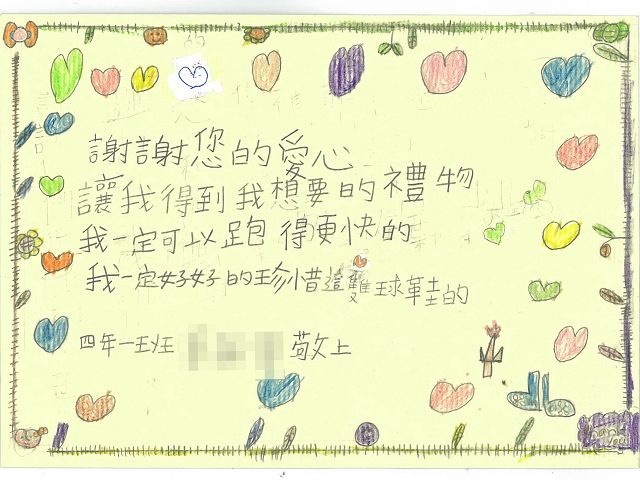 謝謝您的愛心
讓我得到我想要的禮物
我一定可以跑得更快的
我一定好好的珍惜這雙球鞋的
四年一班 敬上
Thank you